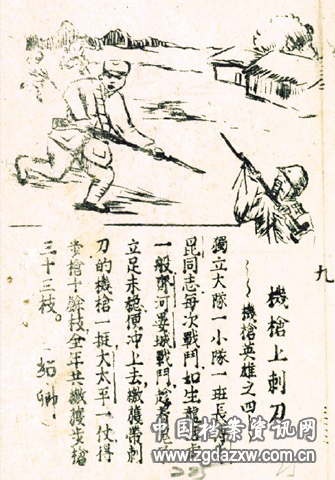 九
機槍上刺刀
機槍英雄之四
獨立大隊一小隊一班長
昆同志每次戰鬥,如生龍活虎
一般,河晏城戰鬥,趁着
立足未穩便冲上去,繳獲帶刺
刀的機槍一挺,大太平一仗得
步槍十餘枝,全年共繳獲步槍
三十三枝。
(紹卿)
23
中国档案资讯网
www.zgdazxw.com.cn